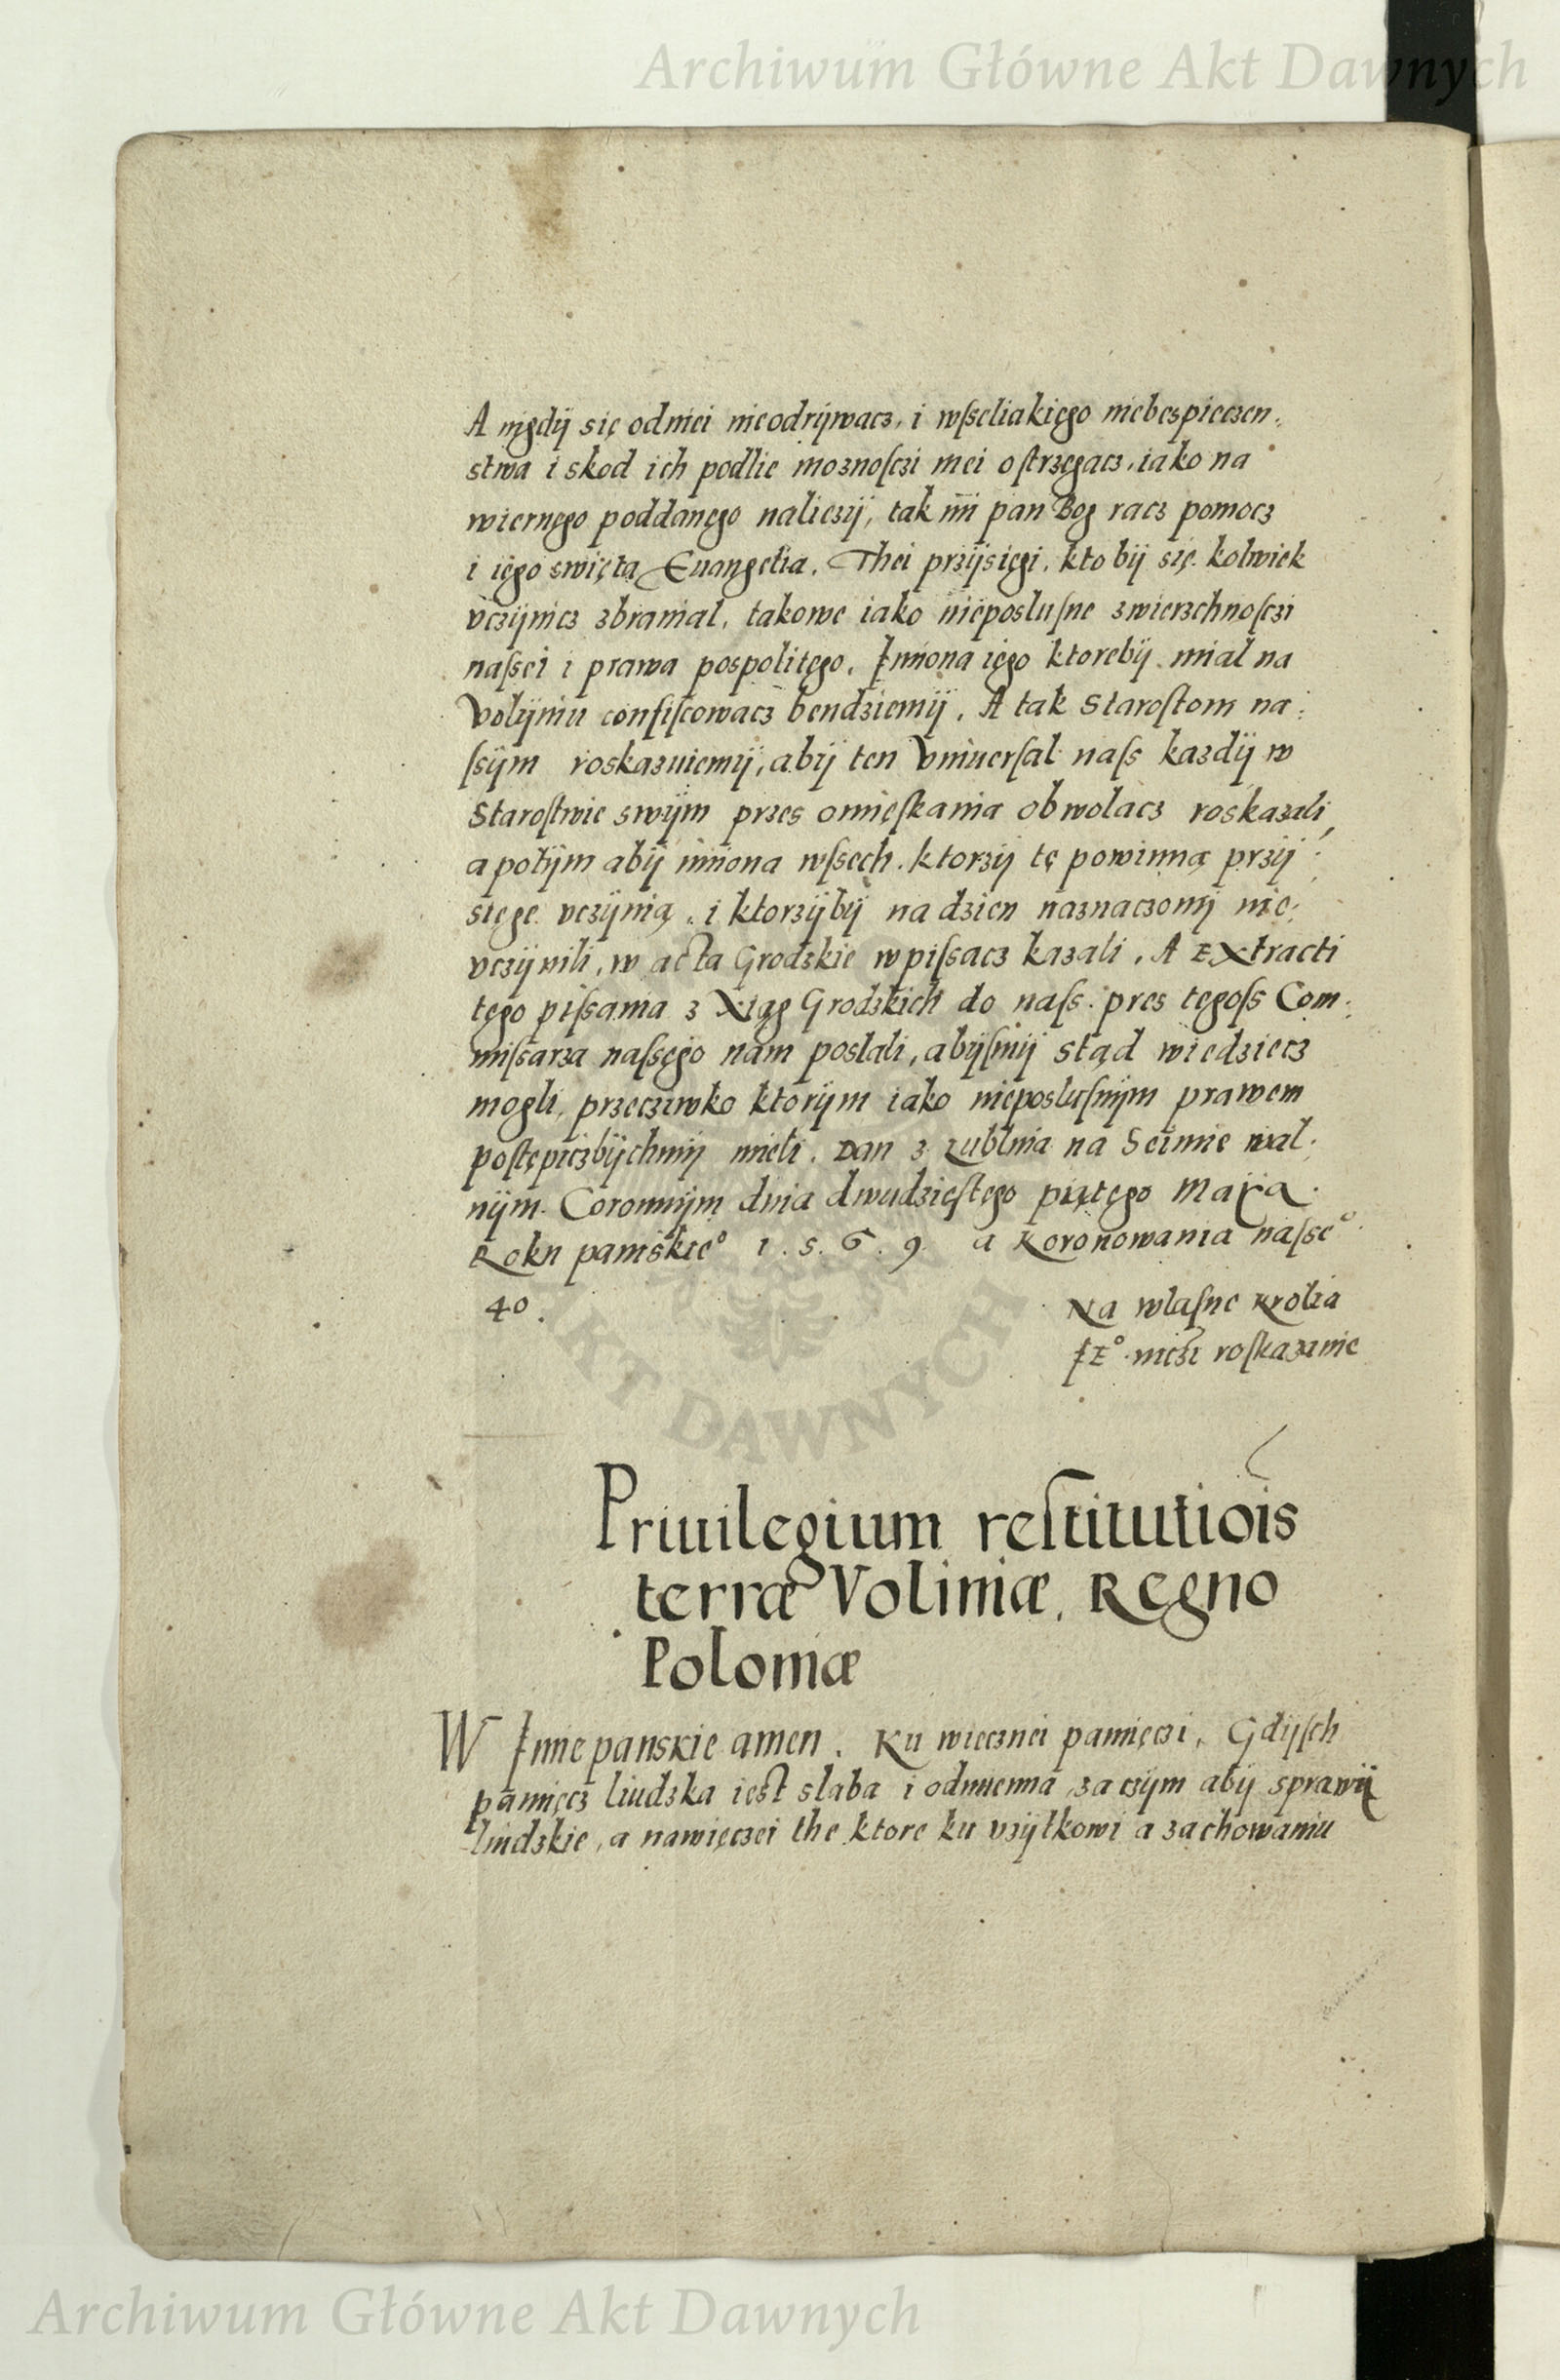 Archiwum Główne Akt Dawnych
A nigdÿ się odniei nieodrÿwacz, i wſseliakięgo niebespieczen:
stwa i skod ich podlie moznoſczi mei oſtrzęgacz, iako na
wiernęgo poddanęgo naliezÿ, tak mi pan Bog racz pomocz
i ięgo swięta Euangelia. Thei przÿsięgi, kto bÿ się kolwiek
vczÿnicz zbranial, takowe iako nieposluſne zwierzchnoſczi
naſsei i prawa pospolitęgo, Imiona ięgo ktorebÿ mial na
Volÿniu confiſcowacz bendziemÿ. A tak Staroſtom na:
ſsÿm roskazuiemÿ, abÿ ten Vniuerſal naſs kazdÿ w
Staroſtwie swÿm przes omięſkania obwolacz roskazali,
a potÿm abÿ imiona wſsech ktorzÿ tę powinną przÿ:
sięge vczÿnią, i ktorzÿbÿ na dzien naznaczonÿ nie:
vczÿnili, w acta Grodzkie wpiſsacz kazali. A Extracti
tęgo piſsania z Xiąg Grodzkich do naſs pres tęgoſs Com:
miſsarza naſsęgo nam poslali, abÿſmÿ stąd wiedziecz
mogli, przecziwko ktorÿm iako nieposluſnÿm prawem
poſtępiczbÿchmÿ mieli. Dan z Lublina na Seimie wal:
nÿm Coronnÿm dnia dwudzieſtęgo piątęgo Maÿa
Roku panſkie° 1.5.6.9. a Koronowania naſse°
40.
Na wlaſne Krolia
IE° mczi roſkazanie
AKT DAWNYCH
Priuilegium reſtitutiois
terræ Voliniæ, Regno
Poloniæ
W Imie panskie amen. Ku wiecznei pamięczi, Gdÿſch
pamięcz liudzka iest slaba i odmienna, zaczÿm abÿ sprawÿ
liudzkie, a nawięczei the ktore ku vzÿtkowi a zachowaniu
Archiwum Główne Akt Dawnych